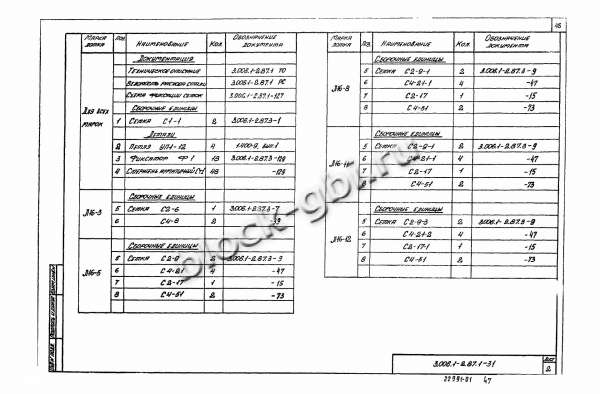 46
Марка лотка Поз. Наименование Кол. Обозначение документа
Документация
Техническое описание 3.006.1-2.87.1 ТО
3.006.1-2.87.1 РС
Схема фиксации сеток 3.006.1-2.87.1-127
Для всех марок
Сборочные единицы
1 Сетка С1-1 2 3.006.1-2.87.3-1
Детали
2 Петля УП1-12 4 1.400-9, вып.1
3 Фиксатор Ф1 18 3.006.1-2.87.3-124
4 48 -124
Л16-3
Сборочные единицы
5 Сетка С2-6 1 3.006.1-2.87.3-7
6 С4-8 2 -39
Л16-5
Сборочные единицы
5 Сетка С2-9 2 3.006.1-2.87.3-9
6 С4-21 4 -47
7 С2-17 1 -15
8 С4-51 2 -73
Марка лотка Поз. Наименование Кол. Обозначение документа
Л16-8
Сборочные единицы
5 Сетка С2-9-1 2 3.006.1-2.87.3-9
6 С4-21-1 4 -47
7 С2-17 1 -15
8 С4-51 2 -73
Сборочные единицы
5 Сетка С2-9-1 2 3.006.1-2.87.3-9
6 С4-21-1 4 -47
7 С2-17 1 -15
8 С4-51 2 -73
Л16-12
Сборочные единицы
5 Сетка С2-9-3 2 3.006.1-2.87.3-9
6 С4-21-2 4 -47
7 С2-17-1 1 -15
8 С4-51 2 -73
3.006.1-2.87.1-31
Лист
2
22991-01 47
block-gbi.ru